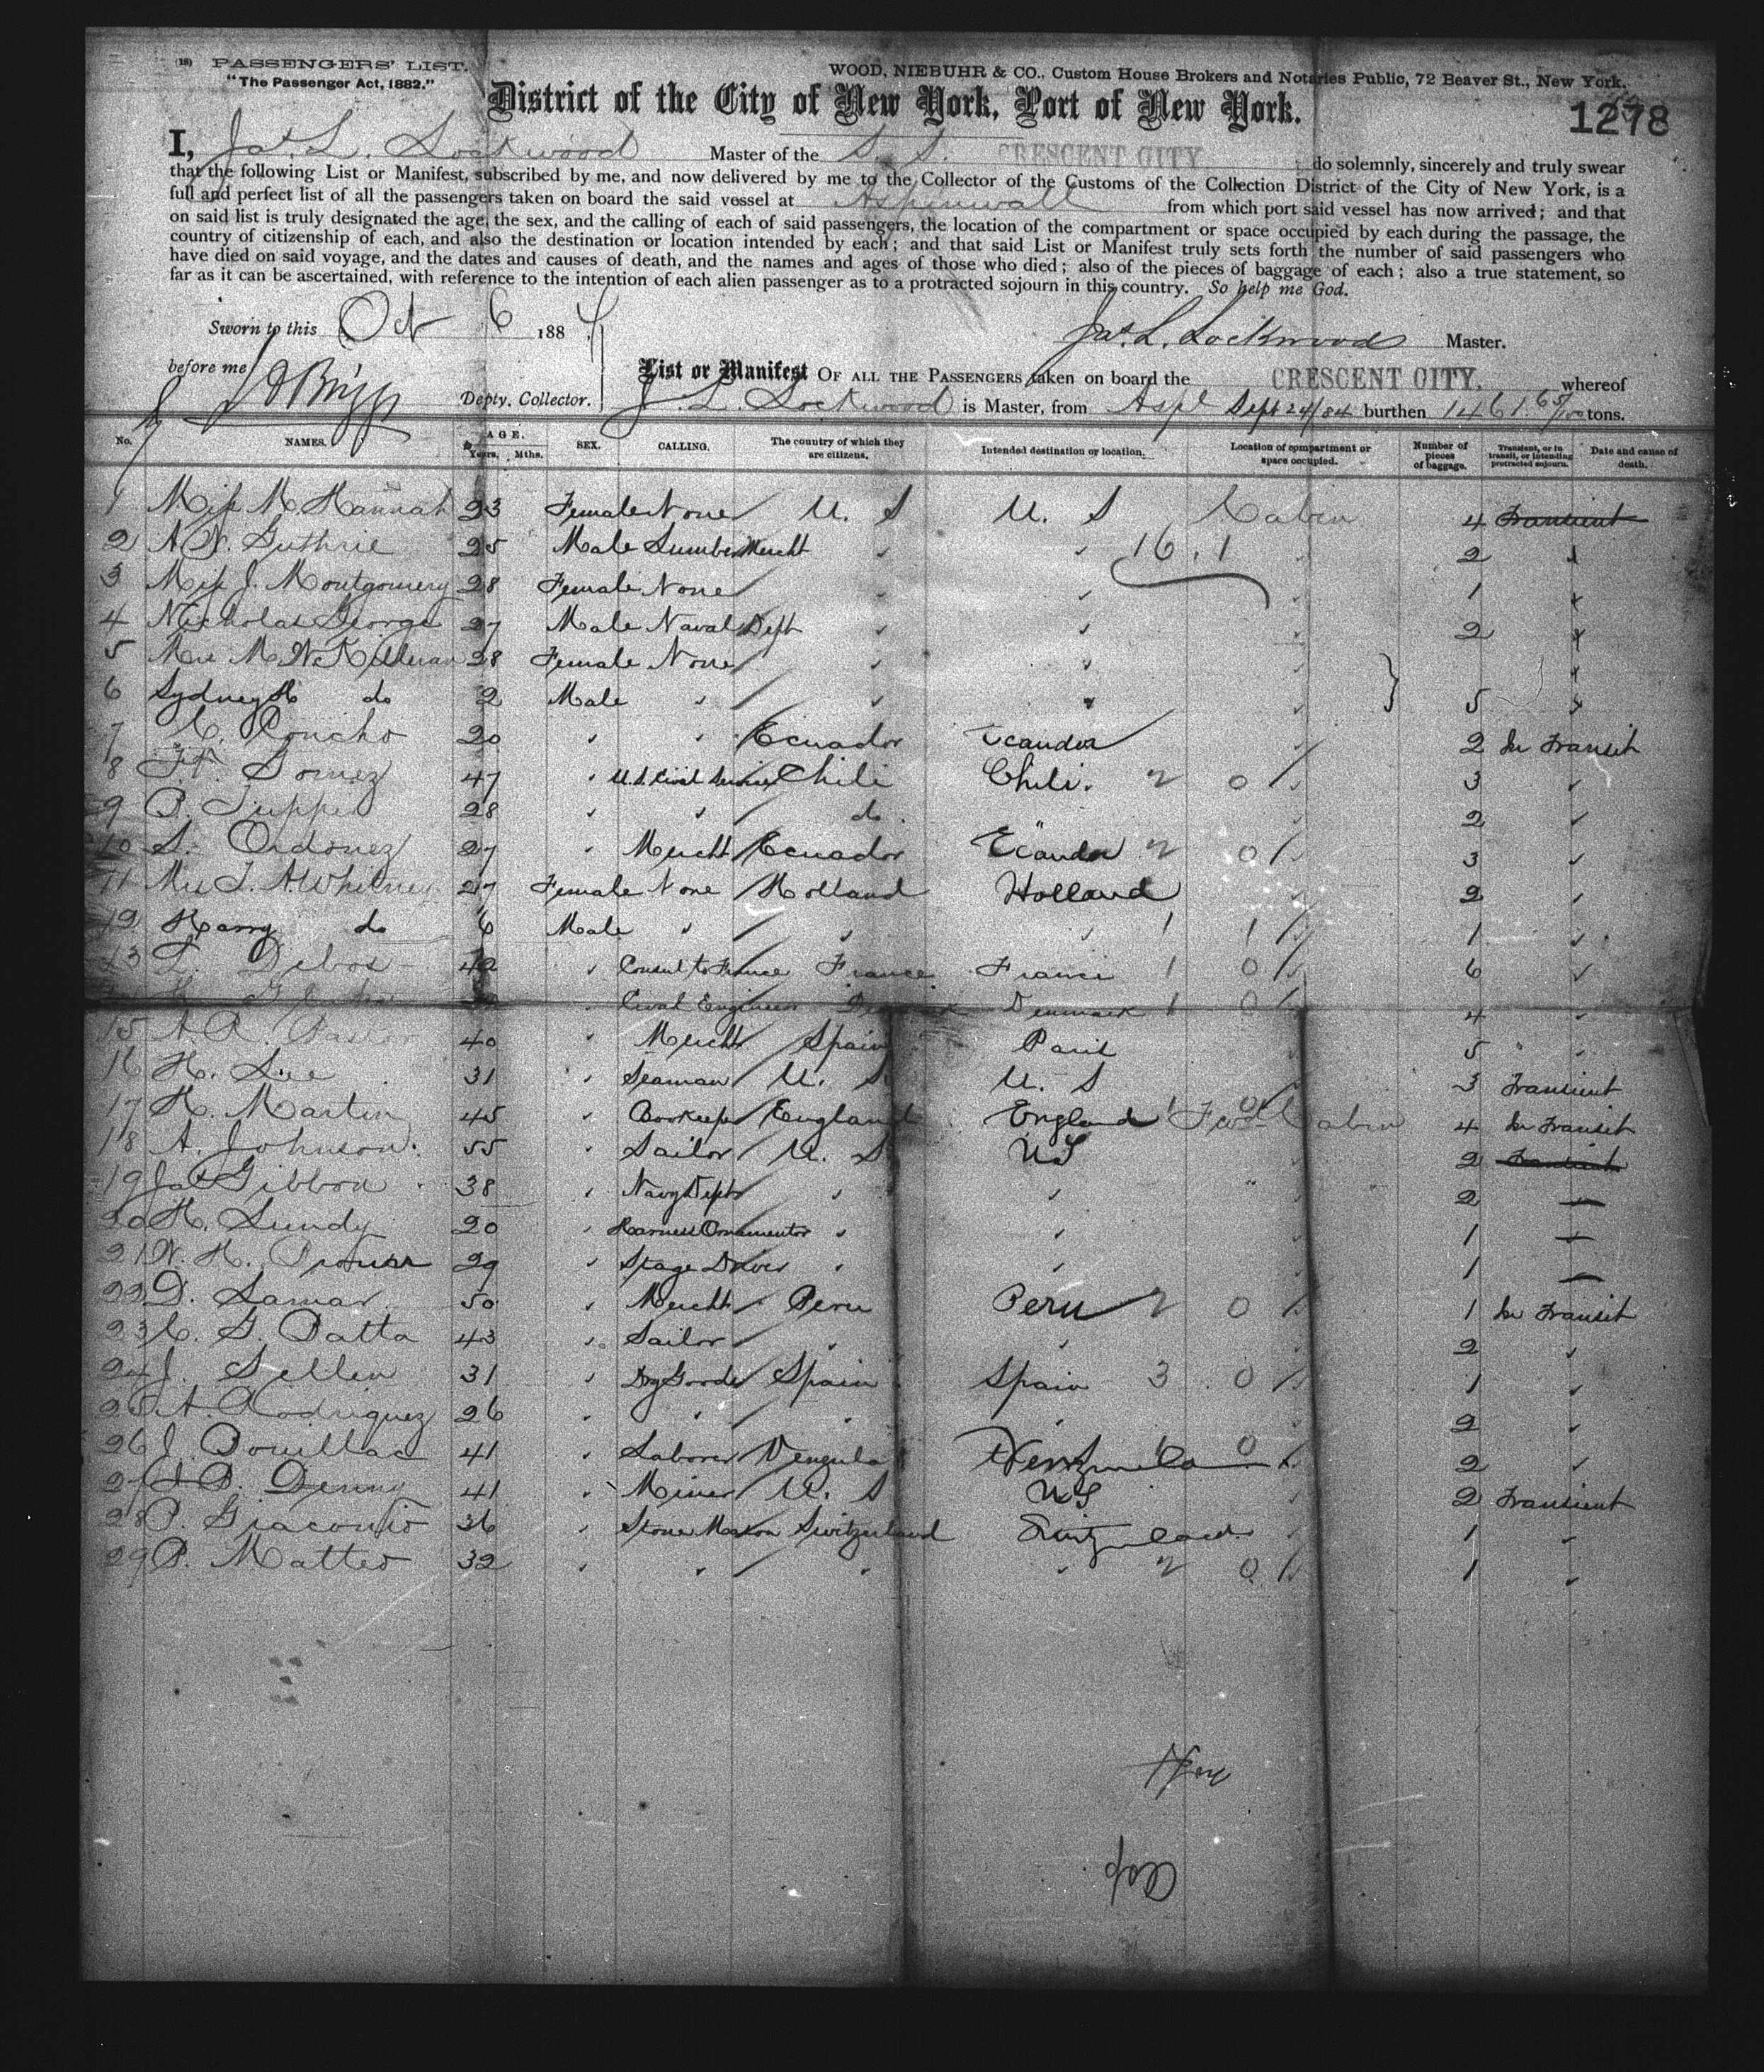 (18) PASSENGERS' LIST.
"The Passenger Act, 1882."
WOOD, NIEBUHR & CO., Custom House Brokers and Notaries Public, 72 Beaver St., New York.
District of the City of New York, Port of New York.
1278
I, Jas. L. Lockwood Master of the S. S. CRESCENT CITY do solemnly, sincerely and truly swear
that the following List or Manifest, subscribed by me, and now delivered by me to the Collector of the Customs of the Collection District of the City of New York, is a
full and perfect list of all the passengers taken on board the said vessel at Aspinwall from which port said vessel has now arrived; and that
on said list is truly designated the age, the sex, and the calling of each of said passengers, the location of the compartment or space occupied by each during the passage, the
country of citizenship of each, and also the destination or location intended by each; and that said List or Manifest truly sets forth the number of said passengers who
have died on said voyage, and the dates and causes of death, and the names and ages of those who died; also of the pieces of baggage of each; also a true statement, so
far as it can be ascertained, with reference to the intention of each alien passenger as to a protracted sojourn in this country. So help me God.
Sworn to this Oct 6 1884
Jas. L. Lockwood Master.
before me Briggs Depty. Collector.
List or Manifest OF ALL THE PASSENGERS taken on board the CRESCENT CITY. whereof
J. L. Lockwood is Master, from Aspl Sept 24/84 burthen 1461.65/100 tons.
No. NAMES. AGE. Years. Mths. SEX. CALLING. The country of which they are citizens. Intended destination or location. Location of compartment or space occupied. Number of pieces of baggage. Transient, or in transit, or intending protracted sojourn. Date and cause of death.
1 Miss M. Hannah 23 Female None U. S U. S Cabin 4 Transient
2 A. W. Guthrie 25 Male Lumber Mercht " " 16.1 2
3 Miss J. Montgomery 28 Female None " " 1
4 Nicholas George 27 Male Naval Dept " " 2
5 Mrs M. W. 28 Female None " "
6 Sydney H do 2 Male " " " 5
7 C. Poncho 20 " " Ecuador Ecuador 2 In Transit
8 Gomez 47 " U.S. Civil Service Chili Chili. 2 0 3 "
9 P. Tupper 28 " " do. 2 "
10 S. Ordonez 27 " Mercht Ecuador Ecuador 2 0 3 "
11 Mrs 27 Female None Holland Holland 2 "
12 Harry do 6 Male " " " 1 1 1 "
13 L. Debos 42 " Consul to France France France 1 0 6 "
" Civil Engineer Denmark 1 0 4 "
15 A. R. Pastor 40 " Mercht Spain Paris 5 "
16 H. Lee 31 " Seaman U. S. U. S 3 Transient
17 H. Martin 45 " Bookeeper England England 1 0 Fwd Cabin 4 In Transit
18 A. Johnson. 55 " Sailor U. S US 2 Transient
19 Jas Gibbon 38 " Navy Dept " " 2
20 H. Lundy 20 " Harness Ornamentor " " 1
21 W. H. 29 " Stage Driver " " 1
22 D. Lamar 50 " Mercht Peru Peru 2 0 1 In Transit
23 C. G. Patta 43 " Sailor " " 2 "
24 J. Sellen 31 " Dry Goods Spain Spain 3 0 1 "
25 A. Rodriguez 26 " " " " 2 "
26 J. Pouillac 41 " Laborer Venezuela 1 0 2 "
27 Denny 41 " Miner U. S US 2 Transient
28 P. Giacomo 36 " Stone Mason Switzerland Switzerland 1 "
29 P. Matteo 32 " " " " 2 0 1 "